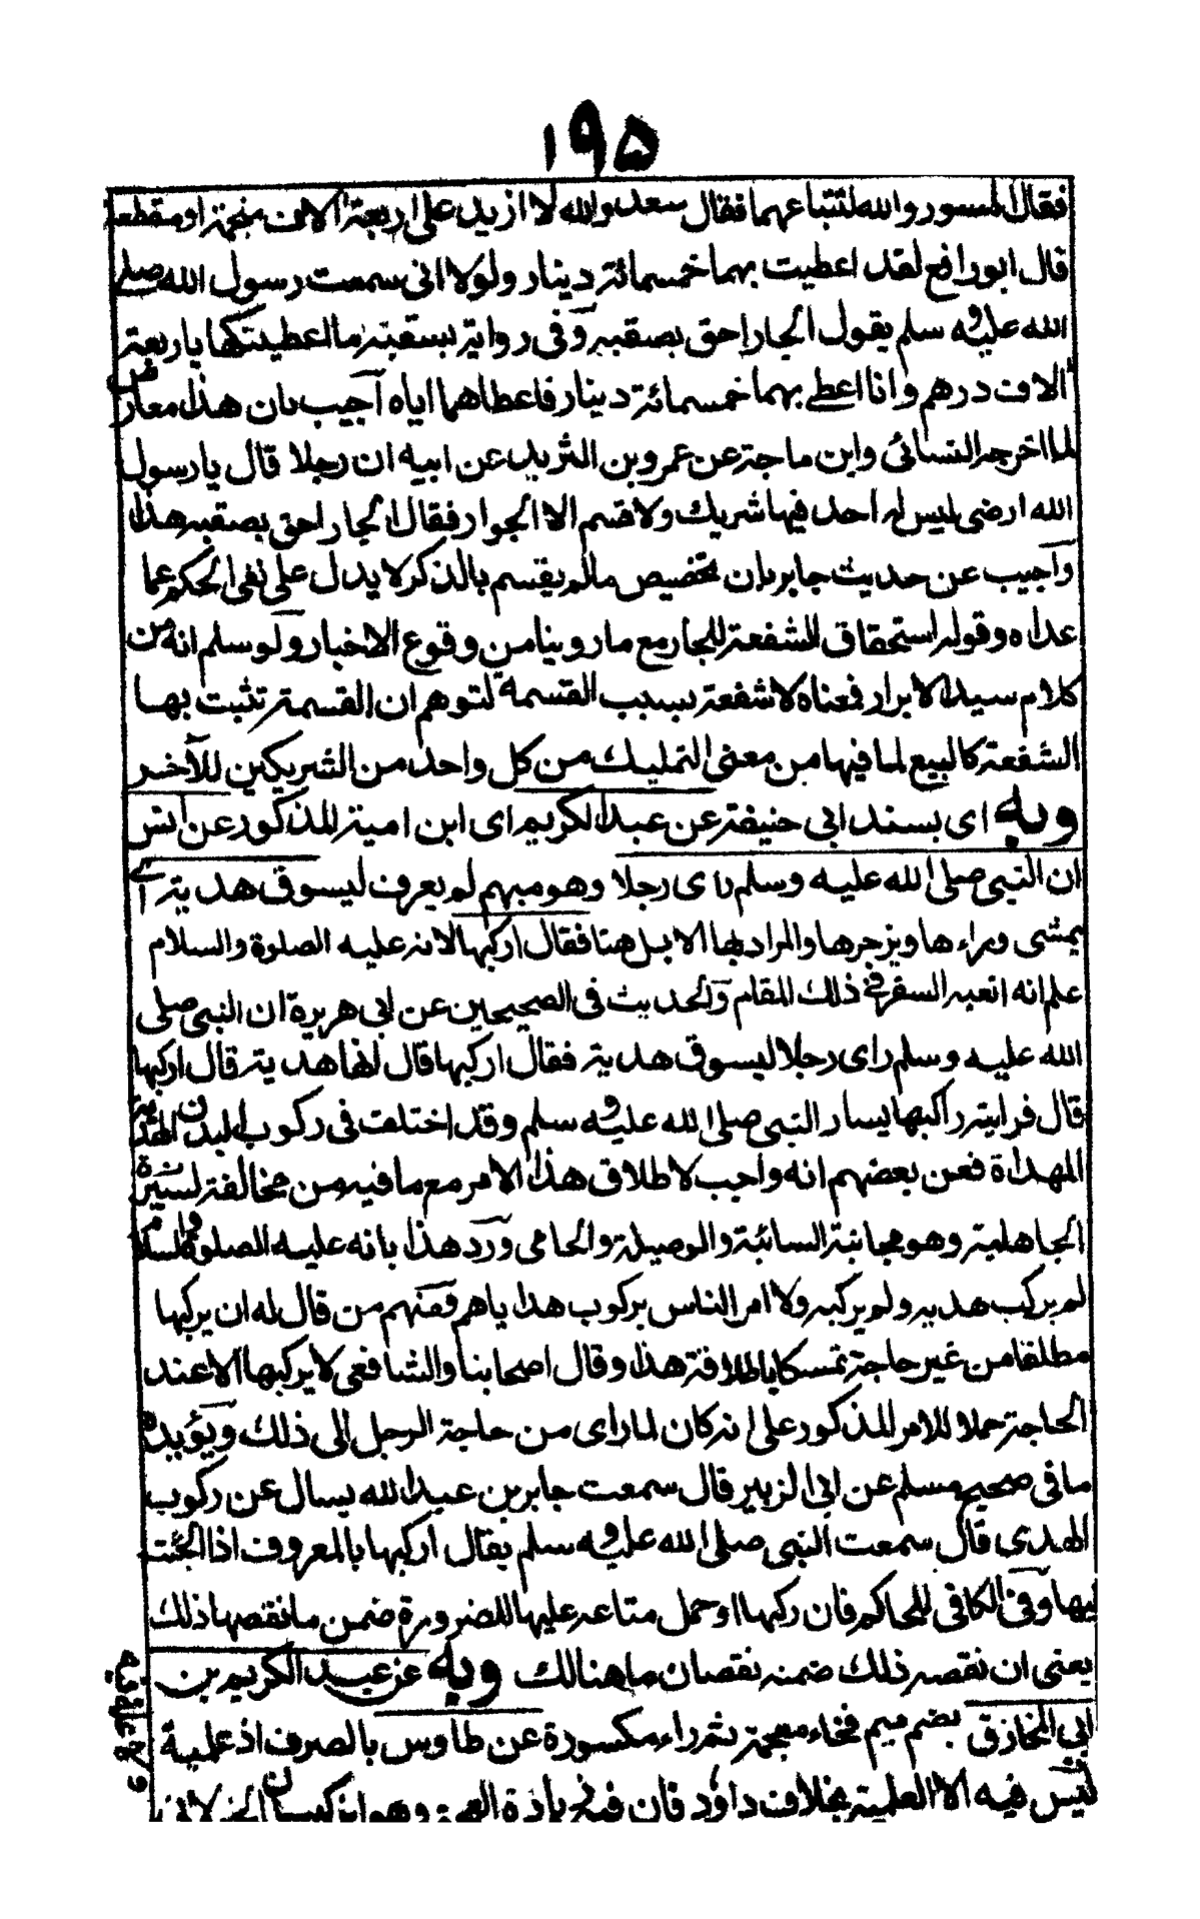 ١٩٥
فقال المسور والله لتبتاعهما فقال سعد والله لا ازيد على اربعة آلاف منجمة او مقطعة
قال ابو رافع لقد اعطيت بهما خمسمائة دينار ولولا انى سمعت رسول الله صلى
الله عليه و سلم يقول الجار احق بصقبه وفى رواية بسقبه ما اعطيتكها باربعة
آلاف درهم وانا اعطى بهما خمسمائة دينار فاعطاهما اياه اجيب بان هذا معارض
لما اخرجه النسائى وابن ماجة عن عمرو بن الشريد عن ابيه ان رجلا قال يا رسول
الله ارضى ليس له احد فيها شريك ولا قسم الا الجوار فقال الجار احق بصقبه هذا
واجيب عن حديث جابر بان تخصيص مالم يقسم بالذكر لا يدل على نفى الحكم عما
عداه وقوله استحقاق الشفعة للجار مع ما روينا من وقوع الاخبار ولو سلم انه من
كلام سيد الابرار فمعناه لا شفعة بسبب القسمة لتوهم ان القسمة تثبت بها
الشفعة كالبيع لما فيها من معنى التمليك من كل واحد من الشريكين للآخر
وبه اى بسند ابى حنيفة عن عبد الكريم اى ابن امية المذكور عن انس
ان النبى صلى الله عليه وسلم راى رجلا وهو مبهم لم يعرف ليسوق هدية اى
يمشى وراءها ويزجرها والمراد بها الابل هنا فقال اركبها لانه عليه الصلوة والسلام
علم انه اتعبه السفر فى ذلك المقام والحديث فى الصحيحين عن ابى هريرة ان النبى صلى
الله عليه وسلم راى رجلا ليسوق هدية فقال اركبها قال انها هدية قال اركبها
قال فرايته راكبها يساير النبى صلى الله عليه و سلم وقد اختلف فى ركوب البدن الهدية
المهداة فعن بعضهم انه واجب لاطلاق هذا الامر مع ما فيه من مخالفة لسيرة
الجاهلية وهو مجانبة السائبة والوصيلة والحامى ورد هذا بانه عليه الصلوة والسلام
لم يركب هديه ولم يركبه ولا امر الناس بركوب هداياهم ومنهم من قال له ان يركبها
مطلقا من غير حاجة تمسكا باطلاقة هذا وقال اصحابنا والشافعى لا يركبها الا عند
الحاجة حملا للامر المذكور على انه كان لما راى من حاجة الرجل الى ذلك ويؤيده
ما فى صحيح مسلم عن ابى الزبير قال سمعت جابر بن عبد الله يسال عن ركوب
الهدى قال سمعت النبى صلى الله عليه و سلم يقال اركبها بالمعروف اذا الجئت
ليها وفى الكافى للحاكم فان ركبها او حمل متاعه عليها للضرورة ضمن ما نقصها ذلك
يعنى ان نقصه ذلك ضمنه نقصان ما هنالك وبه عن عبد الكريم بن
ابى المخارق بضم ميم فخاء معجمة ثم راء مكسورة عن طاوس بالصرف اذ علمية
ليس فيه الا العلمية بخلاف داود فان فيه زيادة العجمة وهو ابن كيسان